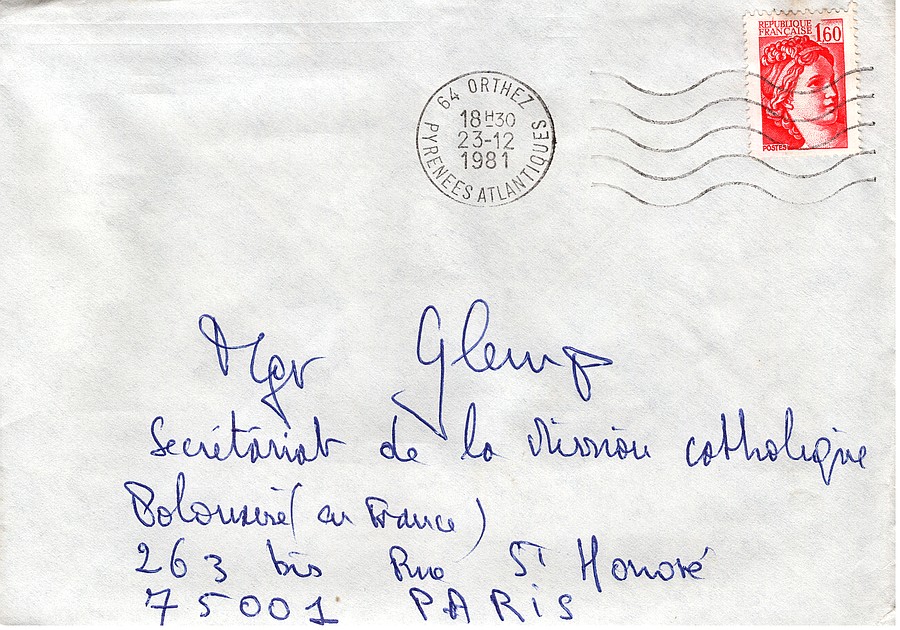 REPUBLIQUE
FRANÇAISE 1,60
POSTES
64 ORTHEZ
18H30
23-12
1981
PYRENEES ATLANTIQUES
Mgr Glemp
Secrétariat de la Mission catholique
Polonaise (en France)
263 bis Rue St Honoré
75001 PARIS